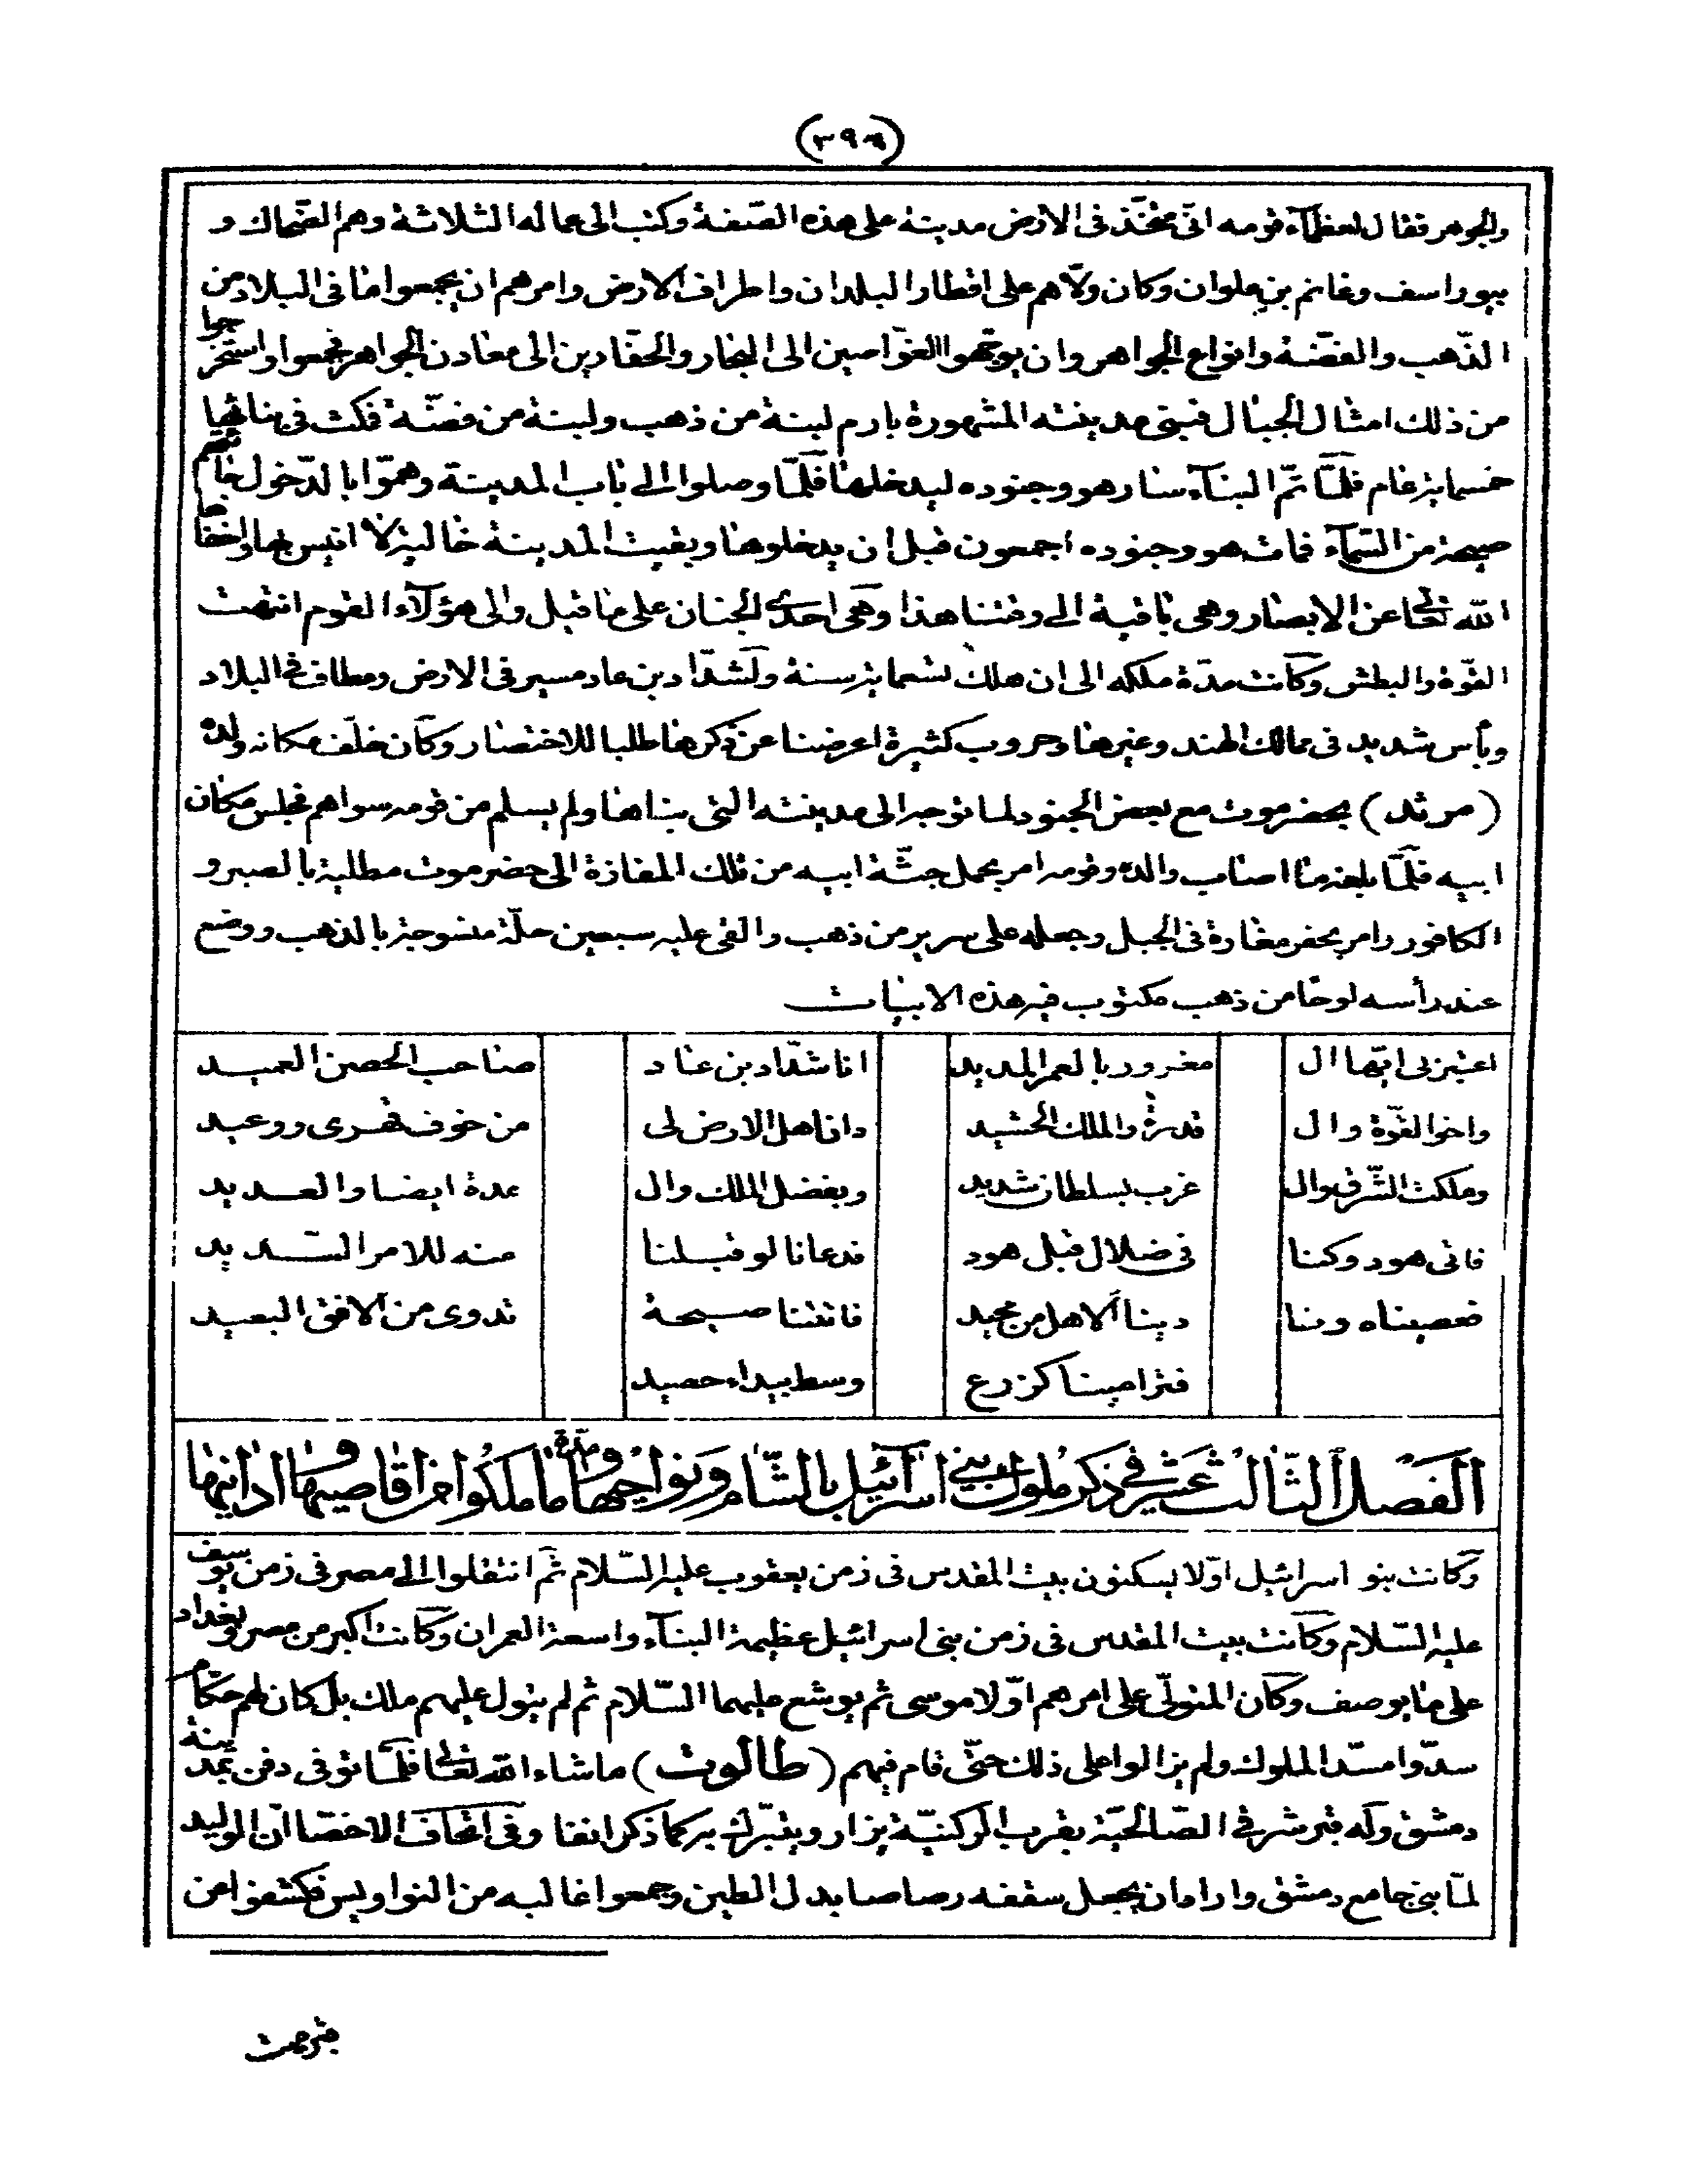 (٣٩٦)
والجوهر فقال لعظمآء قومه انّى متّخذ فى الارض مدينة على هذه الصّفة وكتب الى عماله الثلاثة وهم الضّحاك و
بيوراسف وغانم بن علوان وكان ولّاهم على اقطار البلدان واطراف الارض وامرهم ان يجمعوا ما فى البلاد من
الذّهب والفضّة وانواع الجواهر وان يوجّهوا الغوّاصين الى البحار والحفّادين الى معادن الجواهر فجمعوا واستخرجوا
من ذلك امثال الجبال فبنى مدينته المشهورة بارم لبنة من ذهب ولبنة من فضّة فمكث فى بنائها
خمسماية عام فلمّا تمّ البنآء سار هو وجنوده ليدخلها فلمّا وصلوا الى باب المدينة وهمّوا بالدّخول جاءتهم
صيحة من السّمآء فمات هو وجنوده اجمعون قبل ان يدخلوها وبقيت المدينة خالية لا انيس بها واخفاها
الله تعالى عن الابصار وهى باقية الى وقتنا هذا وهى احدى الجنان على ما قيل والى هؤلآء القوم انتهت
القوّة والبطش وكانت مدّة ملكه الى ان هلك تسعماية سنة ولشدّاد بن عاد مسير فى الارض ومطاف فى البلاد
وبأس شديد فى ممالك الهند وغيرها وحروب كثيرة اعرضنا عن ذكرها طلبا للاختصار وكان خلّف مكانه ولده
(مرثد) بحضرموت مع بعض الجنود لما توجه الى مدينته التى بناها ولم يسلم من قومه سواهم فجلس مكان
ابيه فلمّا بلغه ما اصاب والده وقومه امر بحمل جثّة ابيه من تلك المفازة الى حضرموت مطلية بالصبر و
الكافور وامر بحفر مغارة فى الجبل وجعله على سرير من ذهب والقى عليه سبعين حلّة منسوجة بالذهب ووضع
عند رأسه لوحا من ذهب مكتوب فيه هذه الابيات
اعتبر بى ايّها ال مغرور بالعمر المديد انا شدّاد بن عاد صاحب الحصن العميد
واخو القوّة وال قدرة والملك الحشيد دان اهل الارض لى من خوف قهرى ووعيد
وملكت الشّرق وال غرب بسلطان شديد وبفضل الملك وال عدة ايضا والعديد
فاتى هود وكنا فى ضلال قبل هود فدعانا لو قبلنا منه للامر السّديد
فعصيناه ونا دينا الا هل من محيد فاتتنا صيحة تدوى من الافق البعيد
فترامينا كزرع وسط بيداء حصيد
الفصل الثّالث عشر فى ذكر ملوك بنى اسرآئيل بالشّام ونواحيها ومدّة ما ملكوا من اقاصيها وادانيها
وكانت بنو اسرائيل اوّلا يسكنون بيت المقدس فى زمن يعقوب عليه السّلام ثم انتقلوا الى مصر فى زمن يوسف
عليه السّلام وكانت بيت المقدس فى زمن بنى اسرائيل عظيمة البنآء واسعة العمران وكانت اكبر من مصر وبغداد
على ما يوصف وكان المتولّى على امرهم اوّلا موسى ثم يوشع عليهما السّلام ثم لم يتول عليهم ملك بل كان لهم حكام
سدّوا مسدّ الملوك ولم يزالوا على ذلك حتّى قام فيهم (طالوت) ما شاء الله تعالى فلمّا توفى دفن بمدينة
دمشق وله قبر شرقى الصّالحيّة بقرب الركنيّة يزار ويتبرّك به كما ذكر انفا وفى اتحاف الاخصّا انّ الوليد
لمّا بنى جامع دمشق واراد ان يجعل سقفه رصاصا بدل الطين وجمعوا غالبه من النواويس فكشفوا عن
قبر من